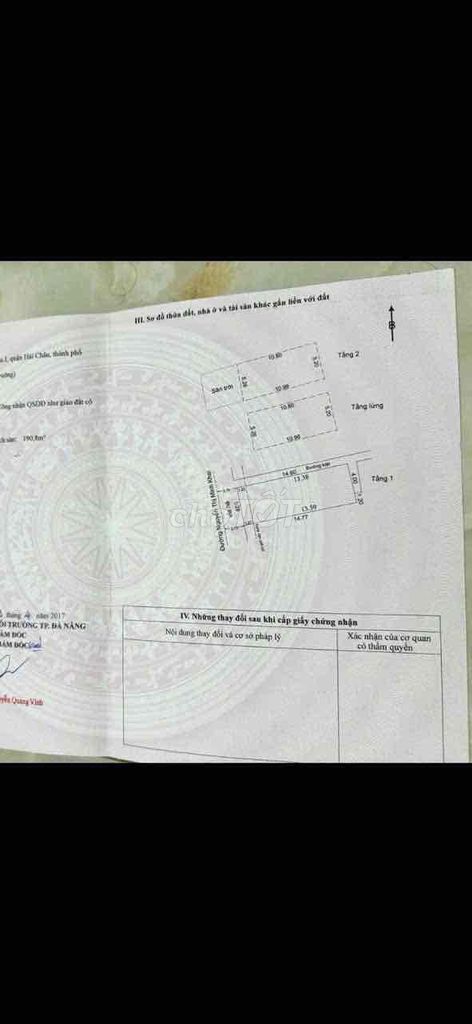 III. Sơ đồ thửa đất, nhà ở và tài sản khác gắn liền với đất
quận Hải Châu, thành phố
công nhận QSDĐ như giao đất có
190,8m²
tháng 4 năm 2017
TRƯỜNG TP. ĐÀ NẴNG
GIÁM ĐỐC
GIÁM ĐỐC
Nguyễn Quang Vinh
10.80
Tầng 2
Sân trời
5.20
10.99
10.80
Tầng lửng
5.20
10.99
14.60
13.38
Tầng 1
4.00
13.59
14.77
Đường Nguyễn Thị Minh Khai
Vỉa hè
chợTỐT
IV. Những thay đổi sau khi cấp giấy chứng nhận
Nội dung thay đổi và cơ sở pháp lý
Xác nhận của cơ quan
có thẩm quyền